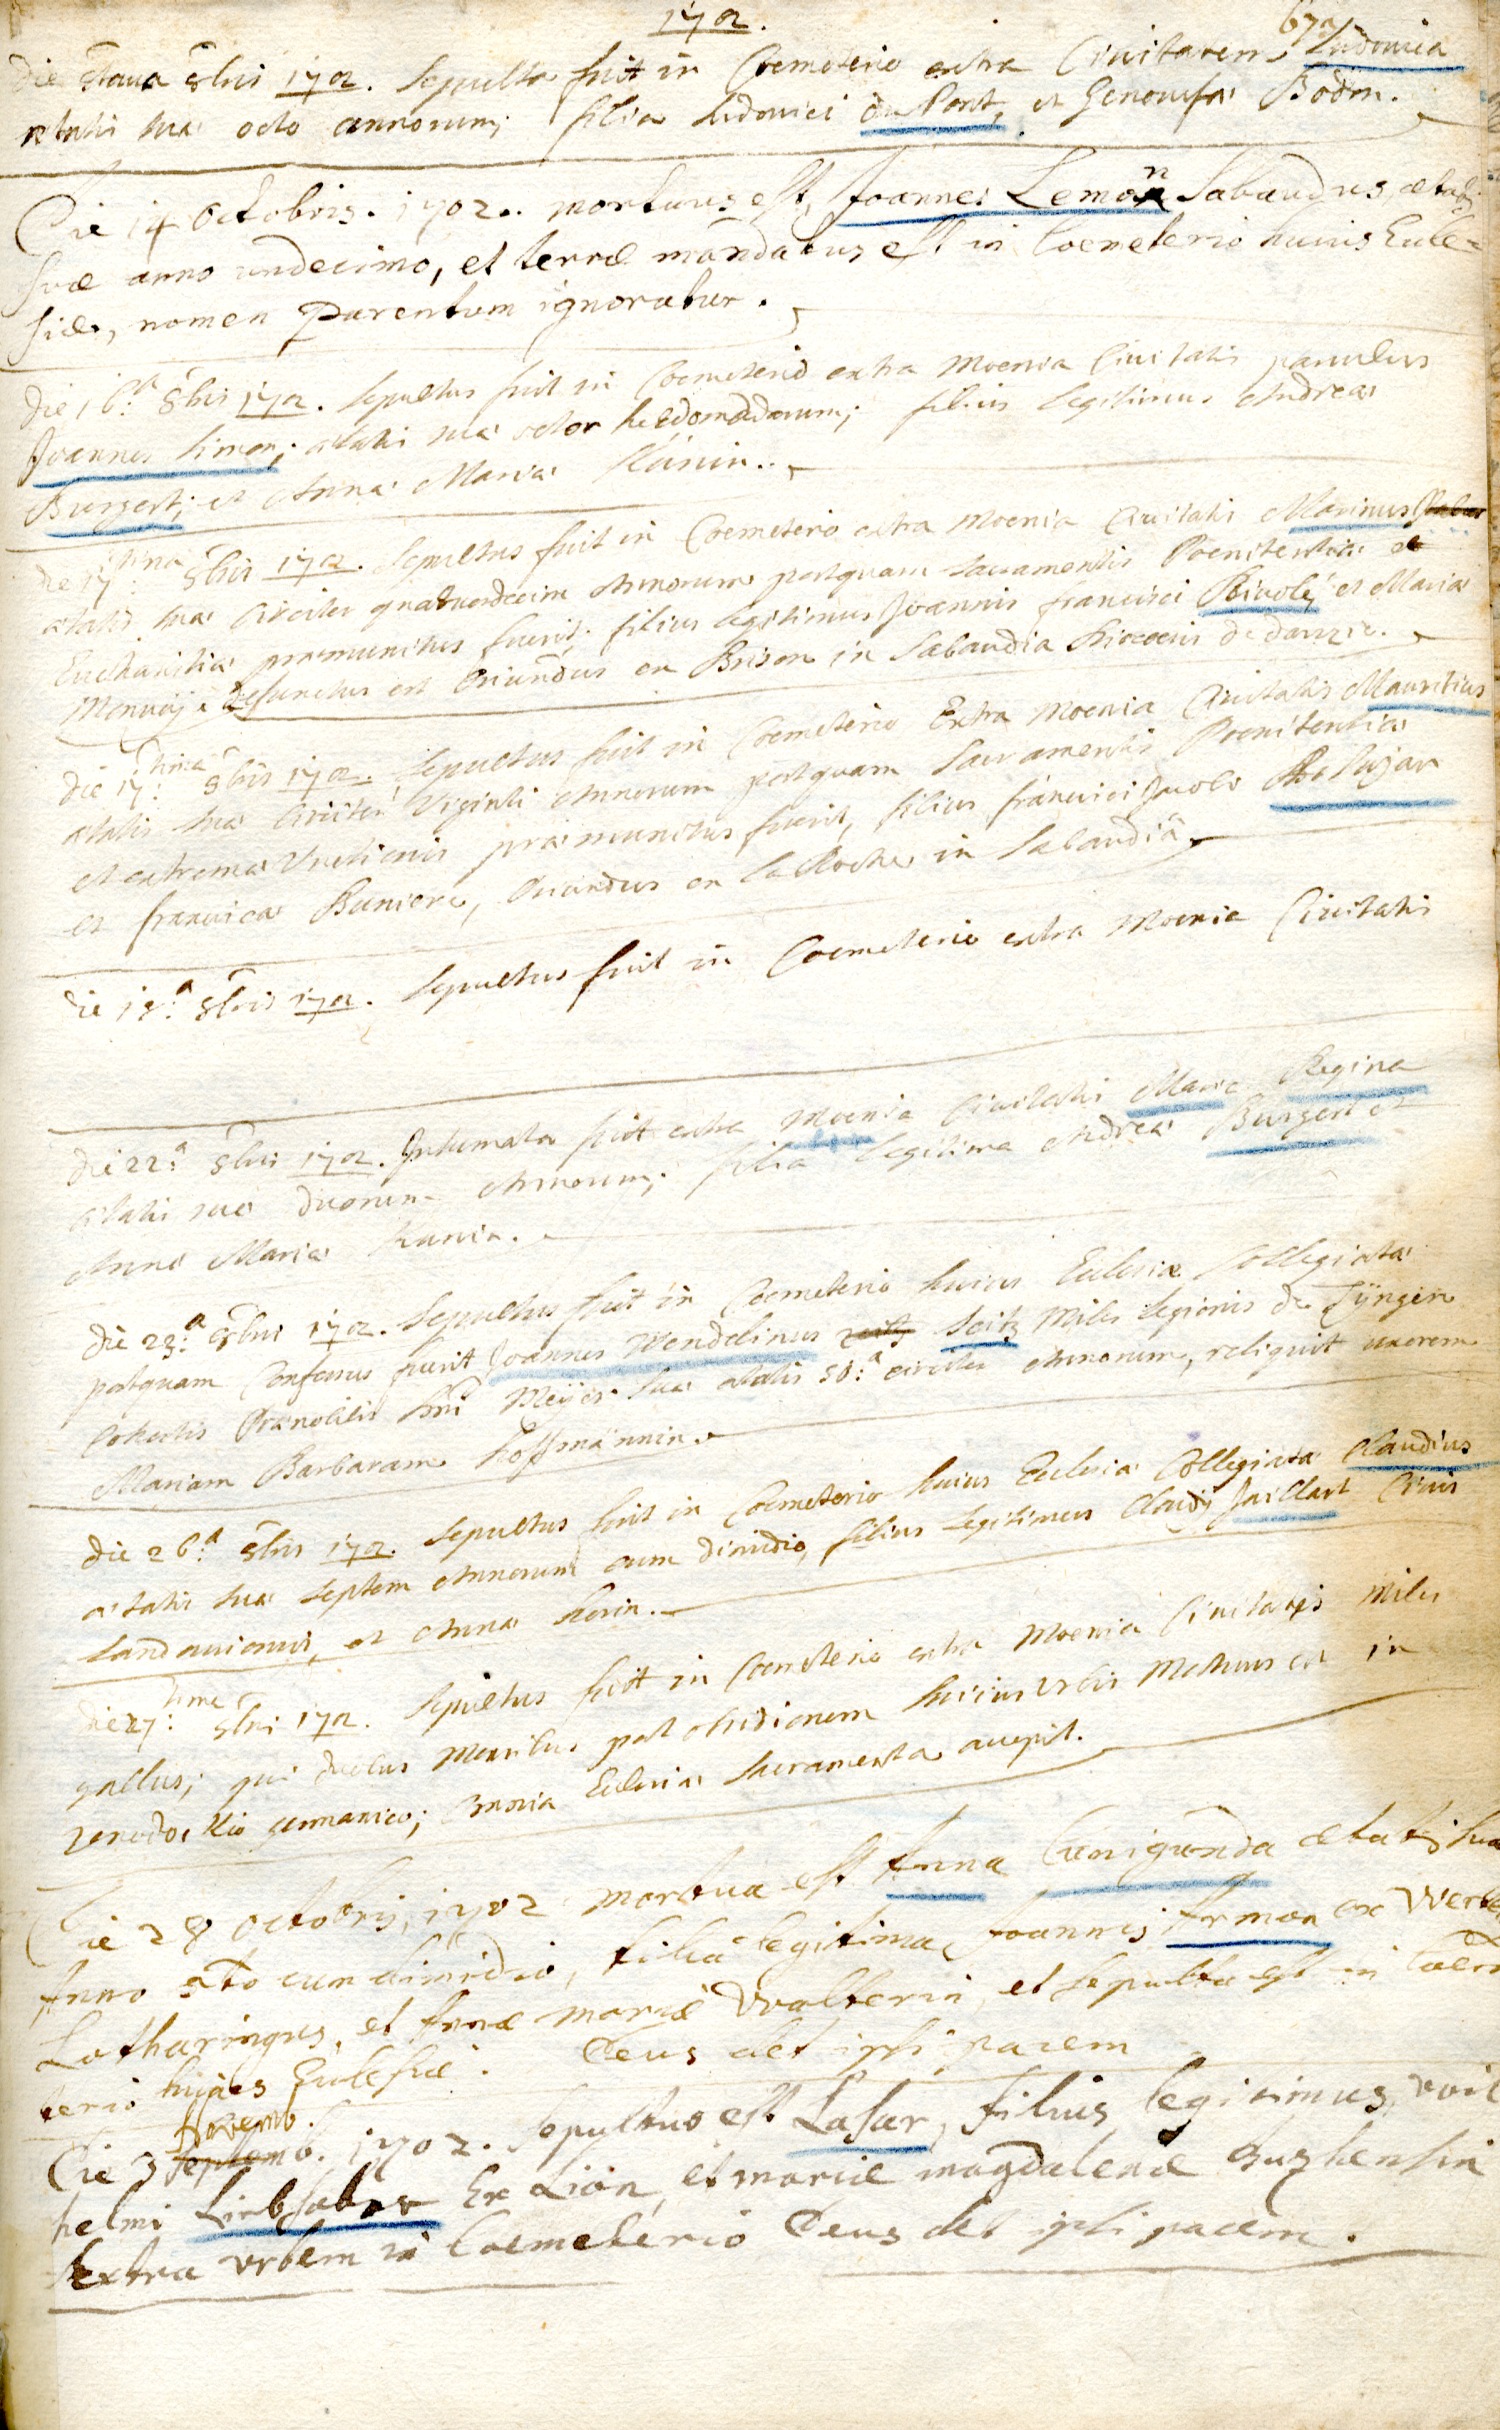 1702.
67
Die 8tava 8bris 1702. Sepulta fuit in Coemeterio extra Civitatem Ludovica
ætatis suæ octo annorum; filia Ludovici du Pont, et Genovefæ Bodon.
Die 14 Octobris. 1702.. mortuus est, Joannes Lemon Sabaudus ætatis
suæ anno undecimo, et terræ mandatus est in Coemeterio huius Eccle=
siæ, nomen parentum ignoratur.
Die 16.a 8bris 1702. Sepultus fuit in Coemeterio extra Moenia Civitatis parvulus
Joannes Simon; ætatis suæ octo hebdomadarum; filius legitimus Andreæ
Burgert; et Annæ Mariæ Kunin.
Die 17.tima 8bris 1702. Sepultus fuit in Coemeterio extra Moenia Civitatis Marinus
ætatis suæ circiter quatuordecim Annorum postquam sacramentis Poenitentiæ et
Eucharistiæ præmunitus fuerit; filius legitimus Joannis francisci Rivolé et Mariæ
defunctus est Oriundus ex Brison in Sabaudia
Die 17.tima 8bris 1702. Sepultus fuit in Coemeterio Extra Moenia Civitatis Mauritius
ætatis suæ circiter Viginti Annorum postquam Sacramentis Poenitentiæ
et extremæ Unctionis præmunitus fuerit, filius francisci
et franciscæ Buniere, Oriundus ex La Roche in Sabaudiâ
Die 18.a 8bris 1702. Sepultus fuit in Coemeterio extra Moenia Civitatis
Die 22.a 8bris 1702. Inhumata fuit extra Moenia Civitatis Maria Regina
ætatis suæ duorum Annorum; filia legitima Andreæ Burgert et
Annæ Mariæ Kunin.
Die 23.a 8bris 1702. Sepultus fuit in Coemeterio huius Ecclesiæ Collegiatæ
postquam Confessus fuerit Joannes Wendelinus Seitz Miles Legionis de Tyngen
Cohortis Prænobilis Dni Meyer suæ ætatis 50.a circiter Annorum, reliquit uxorem
Mariam Barbaram Hoffmännin.
Die 26.a 8bris 1702. Sepultus fuit in Coemeterio huius Ecclesiæ Collegiatæ Claudius
ætatis suæ Septem Annorum cum dimidio, filius legitimus Claudij Jaillart Civis
Landaviensis, et Annæ
Die 27.tima 8bris 1702. Sepultus fuit in Coemeterio extra Moenia Civitatis Miles
gallus; qui duobus Mensibus post obsidionem huius Urbis Mortuus est in
xenodochio germanico; Omnia Ecclesiæ Sacramenta accepit.
Die 28 octobris, 1702 mortua est Anna Cunigunda ætatis suæ
Anno 8to cum dimidio, filia legitima Joannis Armon ex
Lotharingus, et Annæ mariæ Walterin, et sepulta est in Coem
terio hujus Ecclesiæ. Deus det ipsi pacem
Novemb.
Die 3 septemb. 1702. Sepultus est Lasar, filius legitimus, wil
helmi Liebhaber Ex Lion, et mariæ magdalenæ
Extra urbem in Coemeterio Deus det ipsi pacem.